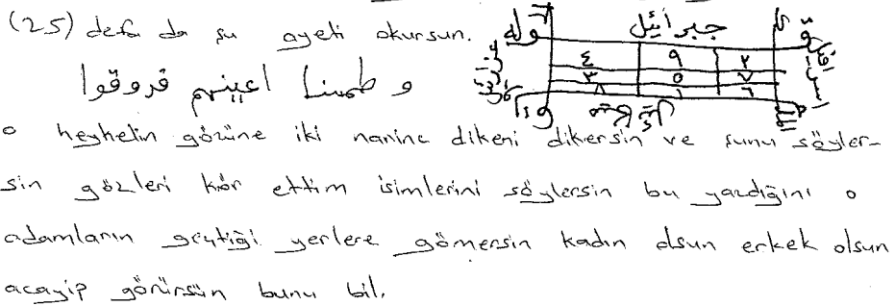 (25) defa da şu ayeti okursun.
و طمسنا اعينهم فذوقوا
جبرائيل
٤ ٩ ٢
٣ ٥ ٧
٨ ١ ٦
o heykelin gözüne iki narinc dikeni dikersin ve şunu söyler-
sin gözleri kör ettim isimlerini söylersin bu yazdığını o
adamların geçtiği yerlere gömersin kadın olsun erkek olsun
acayip görürsün bunu bil.